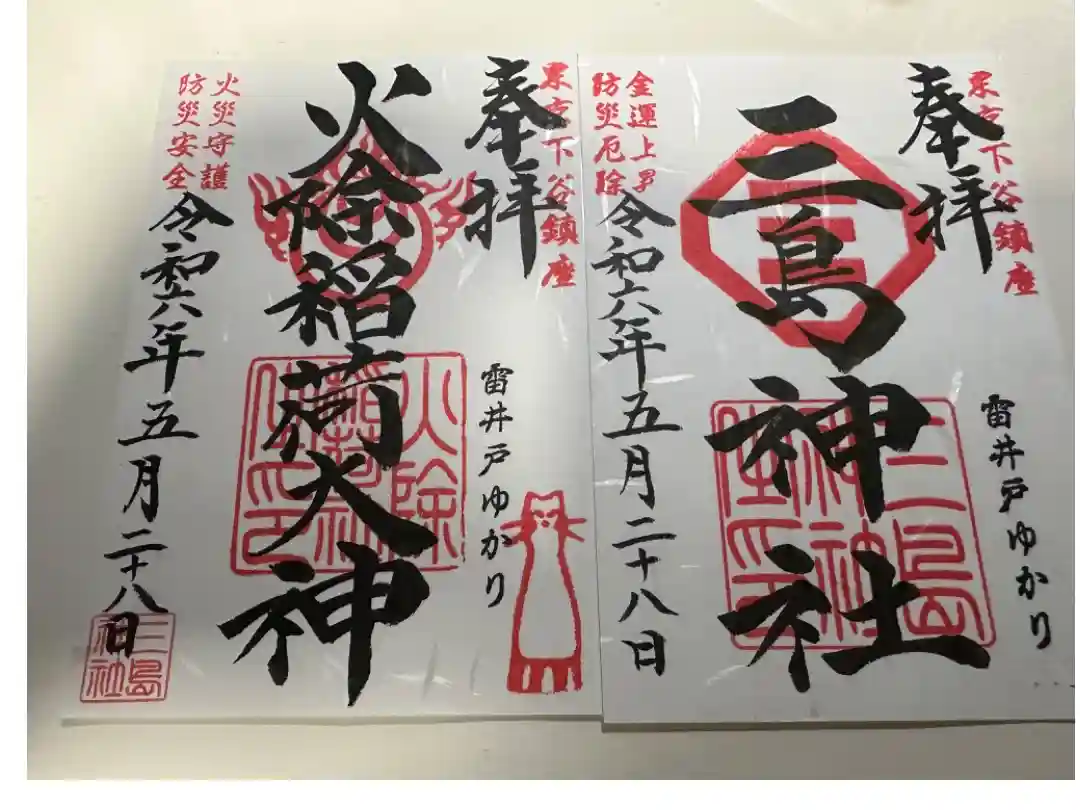 東京下谷鎮座
奉拝
三島神社
雷井戸ゆかり
金運上昇
防災厄除
令和六年五月二十八日
三島
神社
東京下谷鎮座
奉拝
火除稲荷大神
雷井戸ゆかり
火災守護
防災安全
令和六年五月二十八日
火除
三島
神社